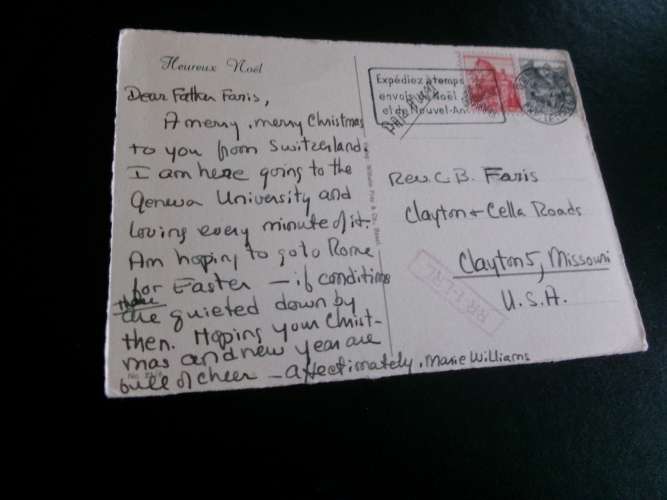 Heureux Noël
Dear Father Faris,
A merry, merry Christmas
to you from Switzerland.
I am here going to the
Geneva University and
loving every minute of it.
Am hoping to go to Rome
for Easter — if conditions
there
are quieted down by
then. Hoping your Christ-
mas and new year are
full of cheer — affectionately, Marie Williams
Expédiez à temps
envois de Noël
et de Nouvel-An
Rev. C. B. Faris
Clayton & Cella Roads
Clayton 5, Missouri
U.S.A.